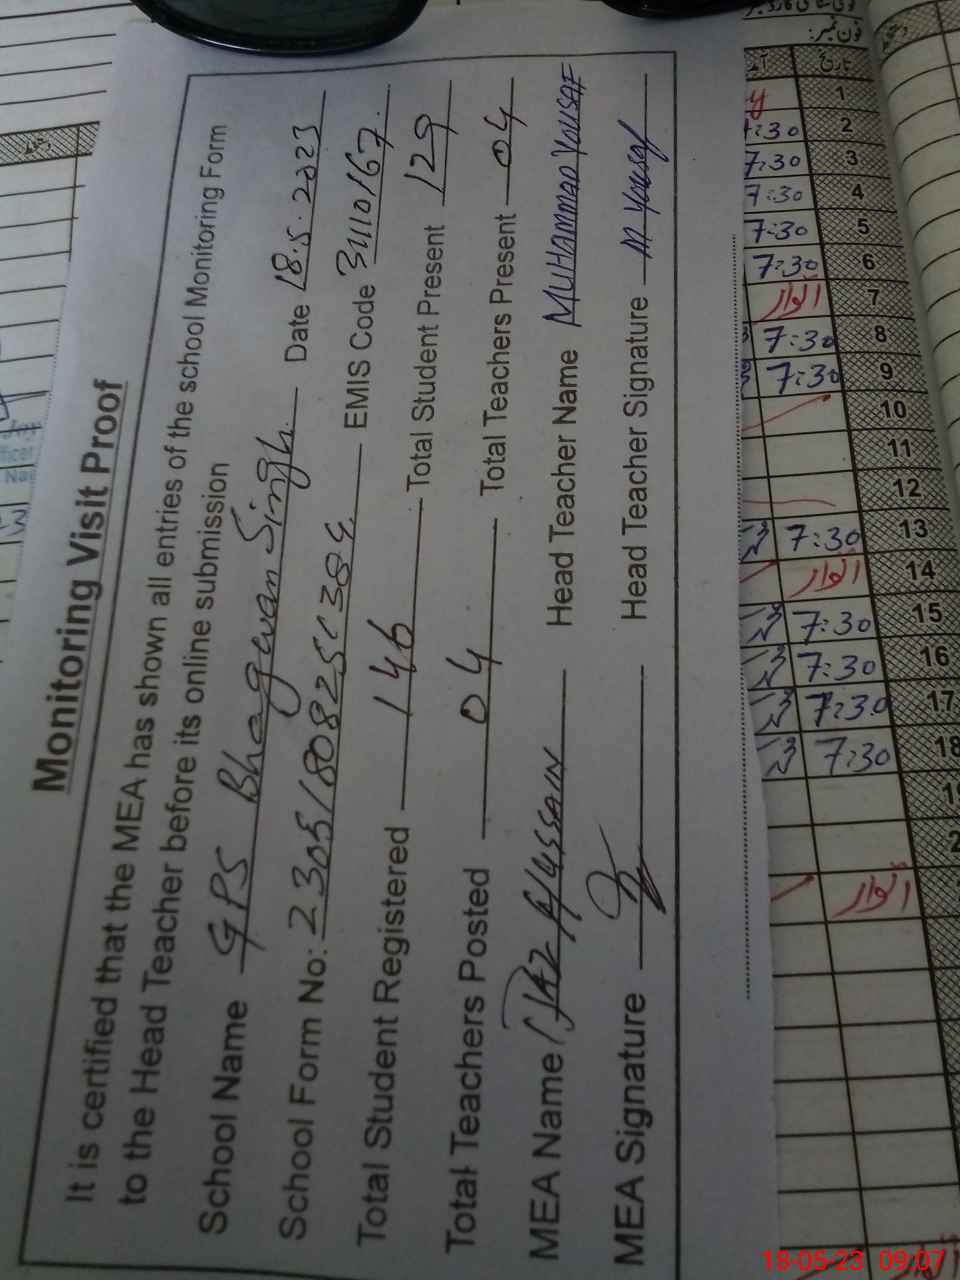 Monitoring Visit Proof
It is certified that the MEA has shown all entries of the school Monitoring Form
to the Head Teacher before its online submission
School Name GPS Bhagwan Singh Date 18.5.2023
School Form No: EMIS Code 31110167
Total Student Registered 146 Total Student Present 129
Total Teachers Posted 04 Total Teachers Present 04
MEA Name IJAZ HUSSAIN Head Teacher Name MUHAMMAD YOUSAF
MEA Signature Head Teacher Signature M Yousaf
فون نمبر:
تاریخ
1
7:30 2
7:30 3
7:30 4
7:30 5
7:30 6
اتوار 7
7:30 8
7:30 9
10
11
12
7:30 13
اتوار 14
7:30 15
7:30 16
7:30 17
7:30 18
اتوار
18-05-23 09:07